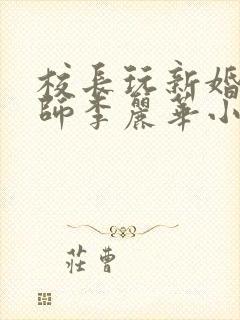 校長玩新婚
師李麗華小
莊曹